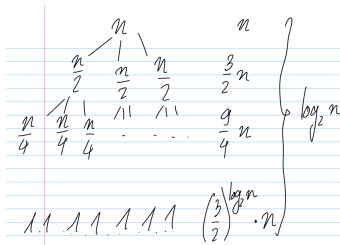 n n
n/2 n/2 n/2 3/2 n
n/4 n/4 n/4 . . . . 9/4 n log₂n
1 . 1 . . 1 . 1 . . 1 . . 1 . 1 (3/2)^log₂n · n